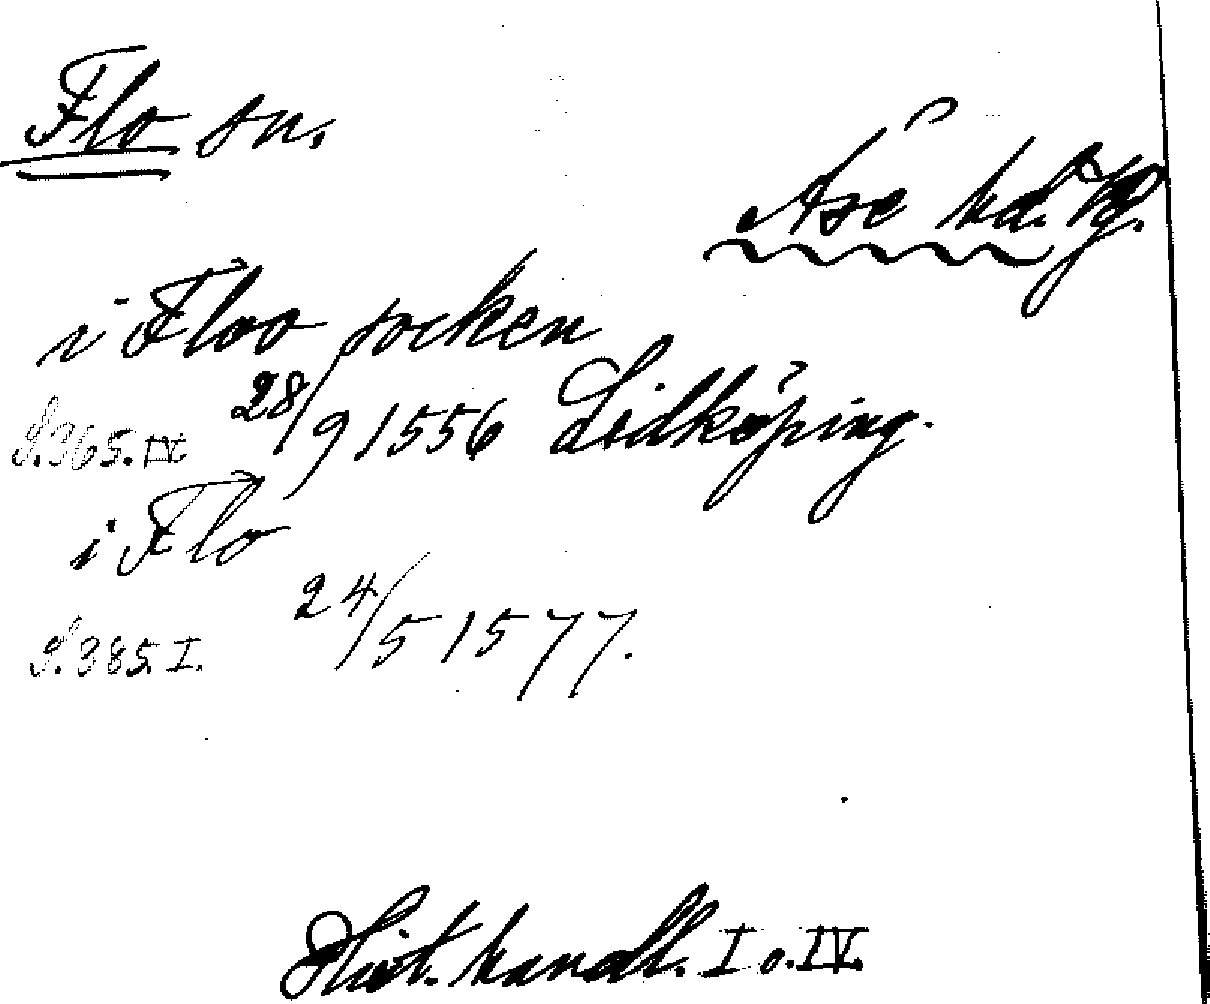 Flo sn.
Åse hd. Vg.
i Floo socken
S. 365. IV 28/9 1556 Lidköping.
i Flo
S. 385. I. 24/5 1577.
Hist. handl. I o. IV.